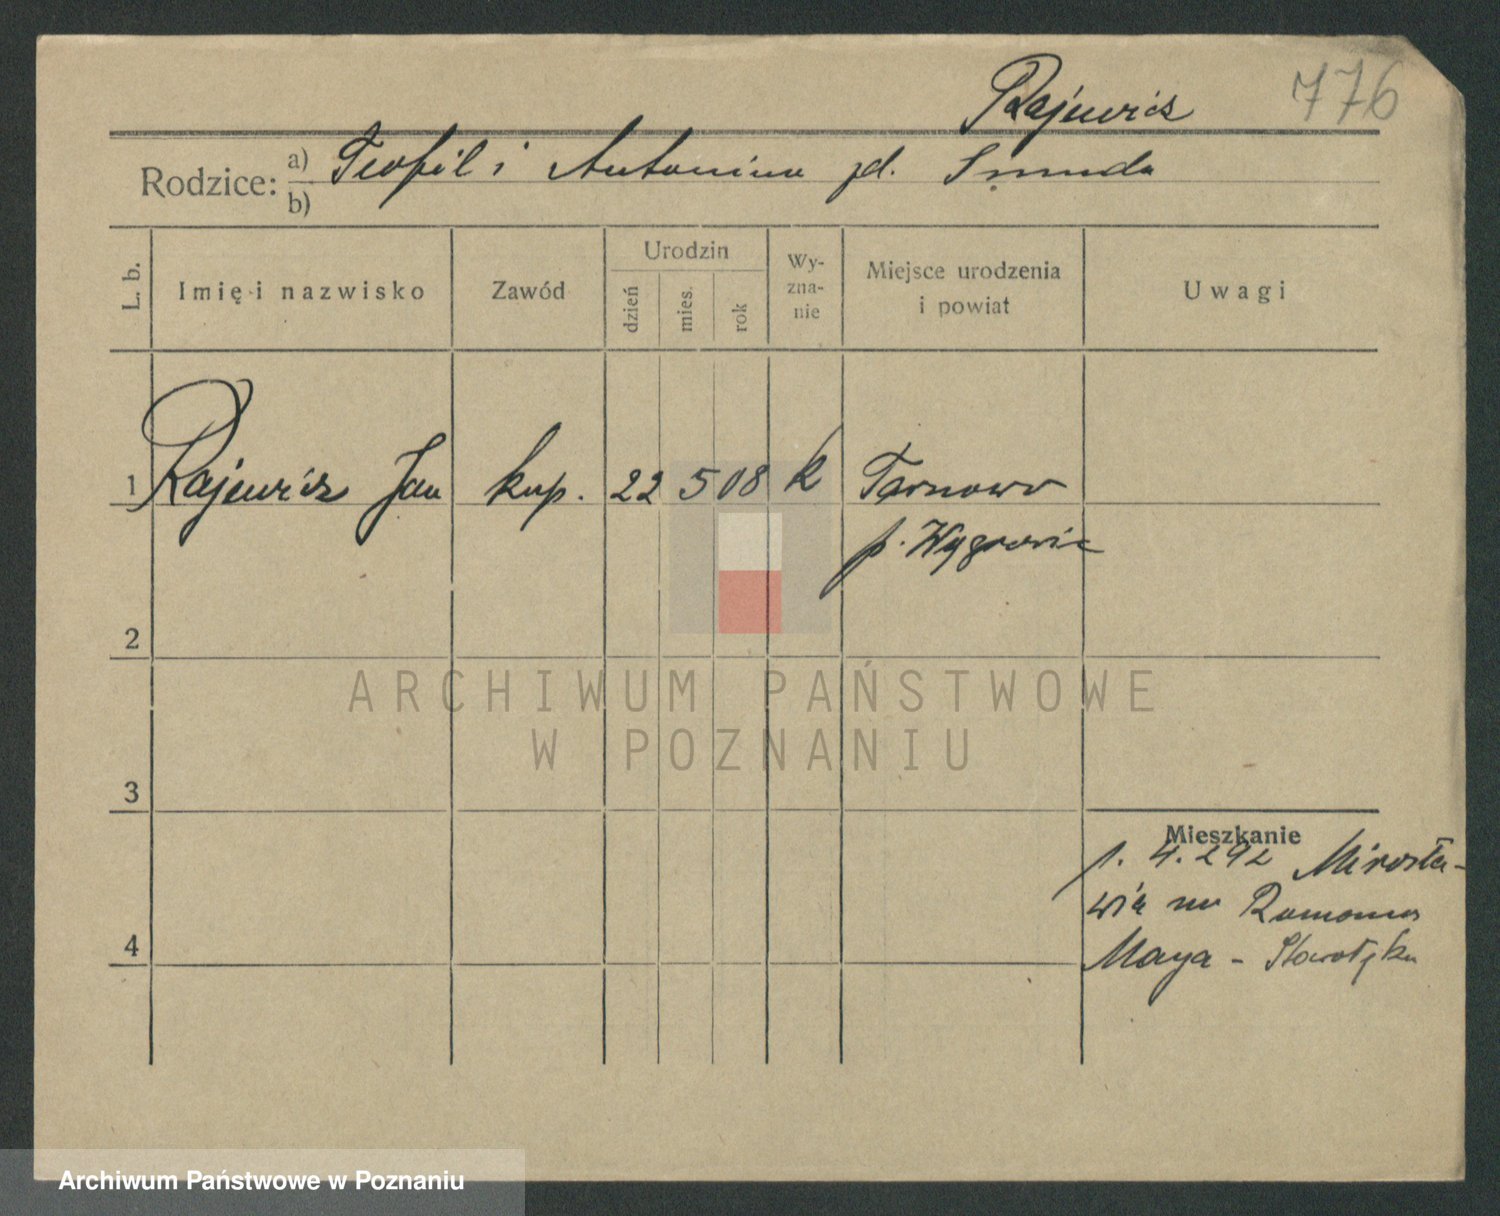 Rajewicz 776
Rodzice: a) Teofil i Antonina zd. Smuda
b)
L. b. Imię i nazwisko Zawód Urodzin dzień mies. rok Wy-zna-nie Miejsce urodzenia i powiat Uwagi
1 Rajewicz Jan kup. 22 5 08 k Tarnowo
p. Wągrowiec
2
ARCHIWUM PAŃSTWOWE
W POZNANIU
3
Mieszkanie
1. 4. 292 Mirosła-
4
Maya -
Archiwum Państwowe w Poznaniu